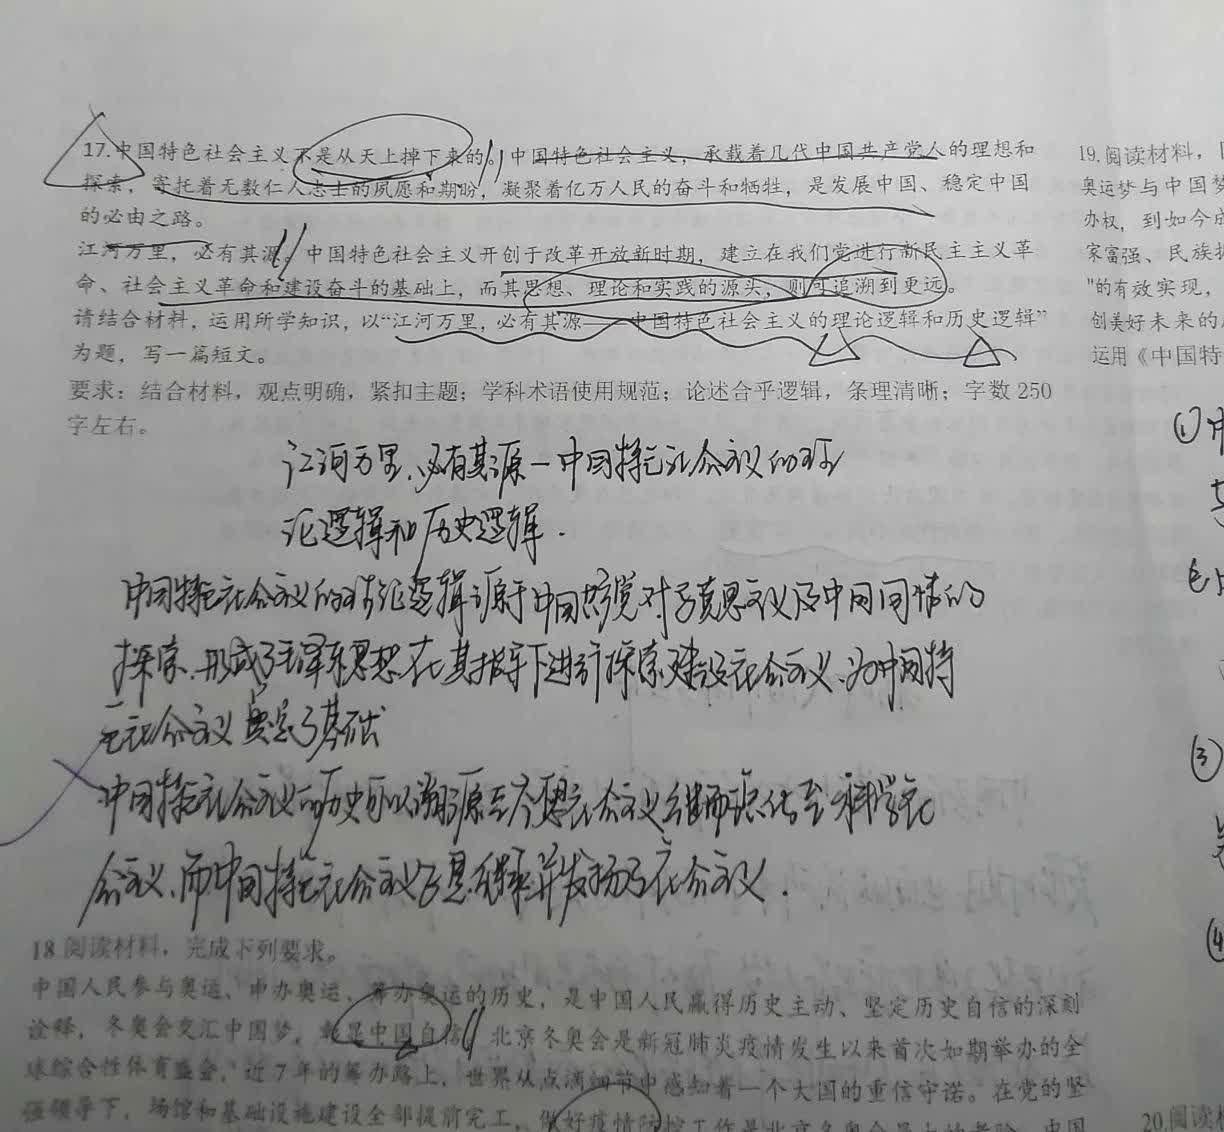 17.中国特色社会主义不是从天上掉下来的。中国特色社会主义，承载着几代中国共产党人的理想和
探索，寄托着无数仁人志士的夙愿和期盼，凝聚着亿万人民的奋斗和牺牲，是发展中国、稳定中国
的必由之路。
江河万里，必有其源。中国特色社会主义开创于改革开放新时期，建立在我们党进行新民主主义革
命、社会主义革命和建设奋斗的基础上，而其思想、理论和实践的源头，则可追溯到更远。
请结合材料，运用所学知识，以“江河万里，必有其源——中国特色社会主义的理论逻辑和历史逻辑”
为题，写一篇短文。
要求：结合材料，观点明确，紧扣主题；学科术语使用规范；论述合乎逻辑，条理清晰；字数 250
字左右。
江河万里、必有其源－中国特色社会主义的理
论逻辑和历史逻辑.
中国特色社会主义的理论逻辑源于中国共产党对马克思主义及中国国情的
探索、形成了毛泽东思想、在其指导下进行探索建设社会主义、为中国特
色社会主义奠定了基础
中国特色社会主义的历史可以溯源至空想社会主义继而演化至科学社
会主义、而中国特色社会主义继承并发扬了社会主义.
18.阅读材料，完成下列要求。
中国人民参与奥运、申办奥运、筹办奥运的历史，是中国人民赢得历史主动、坚定历史自信的深刻
诠释，冬奥会交汇中国梦，彰显中国自信。北京冬奥会是新冠肺炎疫情发生以来首次如期举办的全
球综合性体育盛会，近 7 年的筹办路上，世界从点滴细节中感知着一个大国的重信守诺。在党的坚
强领导下，场馆和基础设施建设全部提前完工，做好疫情防控工作是北京冬奥会最大的考验，中国
19.阅读材料，
奥运梦与中国梦
办权，到如今成
家富强、民族
"的有效实现，
创美好未来的
运用《中国特
①中
③
④
20.阅读